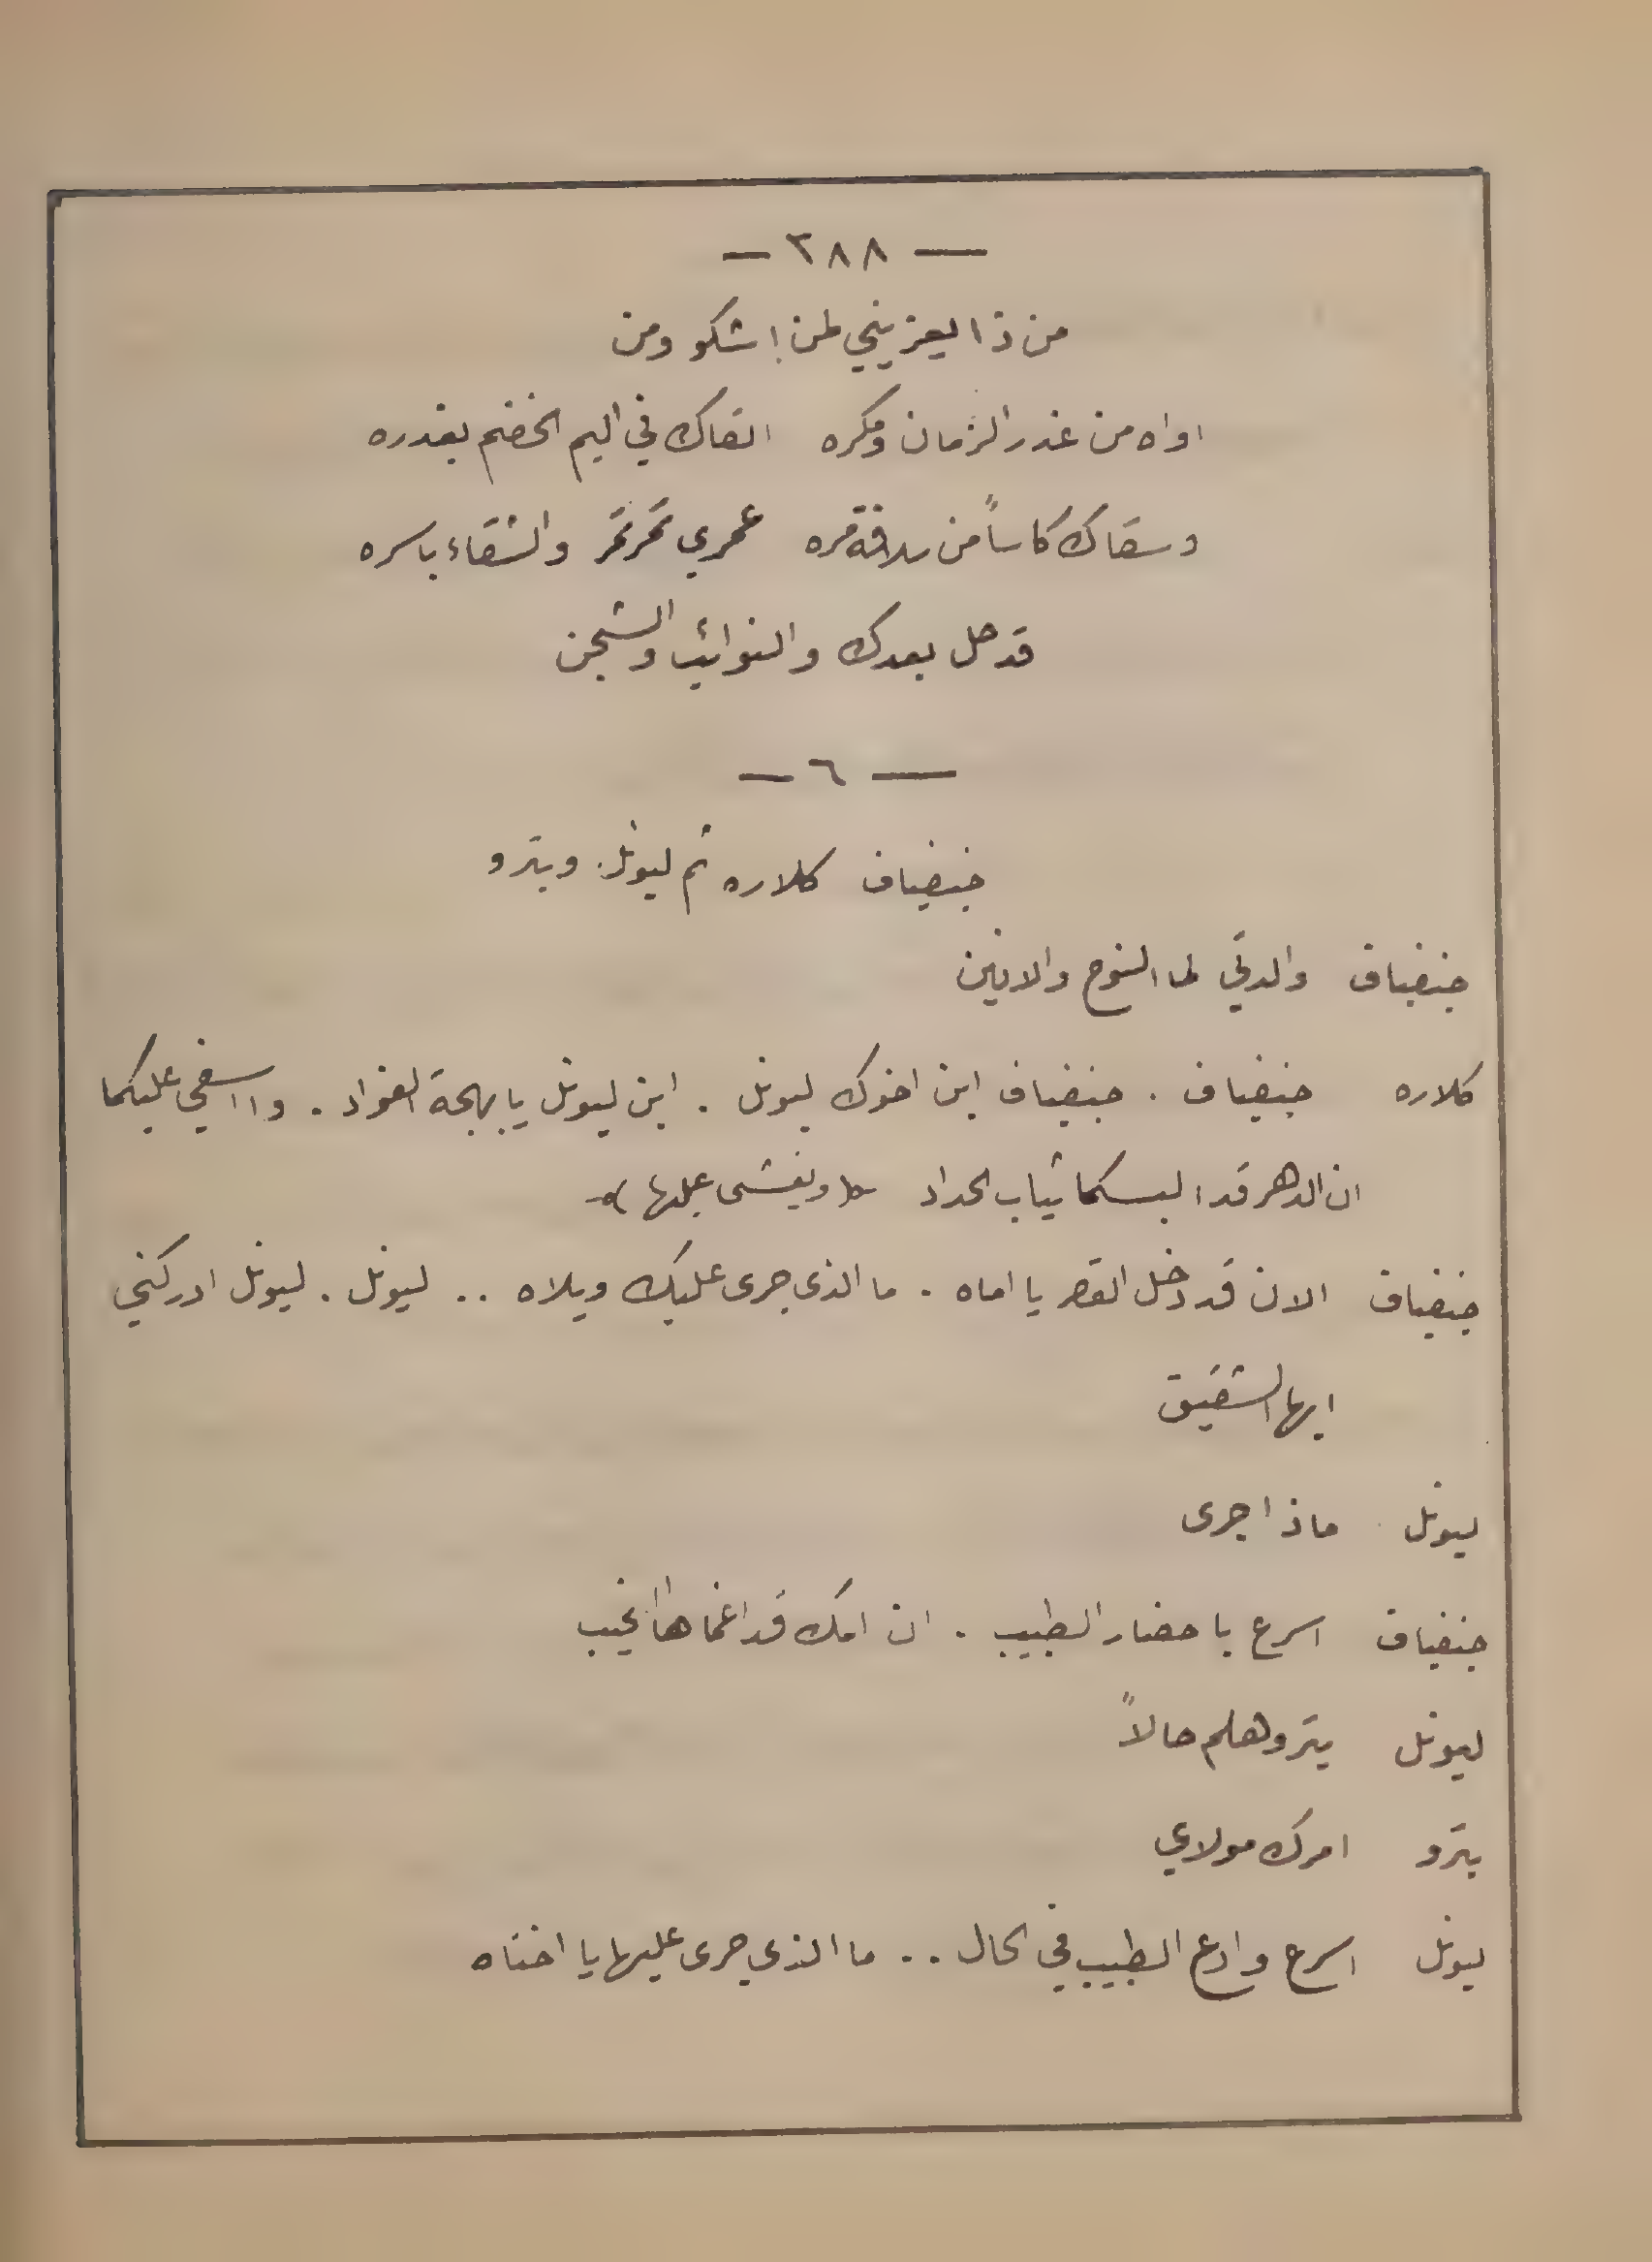 — ٣٨٨ —
من ذا يعزيني لمن اشكو ومن
اواه من غدر الزمان ومكره القاك في اليم الخضم بغدره
وسقاك كاساً من سلافة مره عمري تمرمَر والشقاء باسره
قد حل بعدك والنوائب والشجن
— ٦ —
جنفياف كلاره ثم ليونل وبترو
جنفياف والدتي لما النوح والانين
كلاره جنفياف . جنفياف اين اخوك ليونل . اين ليونل يا بهجة الفؤاد . وااسفي عليكما
ان الدهر قد البسكما ثياب الحداد ( ويغشى عليها )
جنفياف الان قد دخل القصر يا اماه . ما الذي جرى عليك ويلاه .. ليونل . ليونل ادركني
ايها الشقيق
ليونل ماذا جرى
جنفياف اسرع باحضار الطبيب . ان امك قد اغماها النحيب
ليونل بترو هلم حالاً
بترو امرك مولاي
ليونل اسرع وادع الطبيب في الحال .. ما الذي جرى عليها يا اختاه